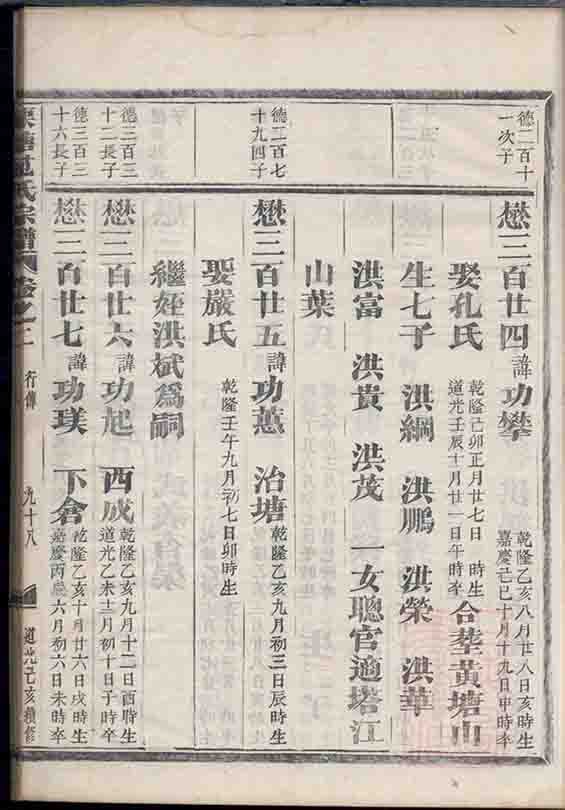 德二百十
一次子
懋三百廿四諱功攀
乾隆乙亥八月廿八日亥時生
嘉慶己巳十月十九日申時卒
娶孔氏
乾隆己卯正月廿七日 時生
道光壬辰十一月廿一日午時卒
合塟黃塘山
生七子 洪綱 洪鵬 洪榮 洪華
洪富 洪貴 洪茂 一女聰官適塔江
山葉
德二百七
十九四子
懋三百廿五諱功蕙 治塘
乾隆乙亥九月初三日辰時生
娶嚴氏
乾隆壬午九月初七日卯時生
繼姪洪斌爲嗣
德三百三
十二長子
懋三百廿六諱功起 西成
乾隆乙亥九月十二日酉時生
道光乙未十二月初十日子時卒
德三百三
十六長子
懋三百廿七諱功璞 下倉
乾隆乙亥十月廿六日戌時生
嘉慶丙辰六月初六日未時卒
范氏宗譜 卷之二 行傳 九十八 道光己亥續修